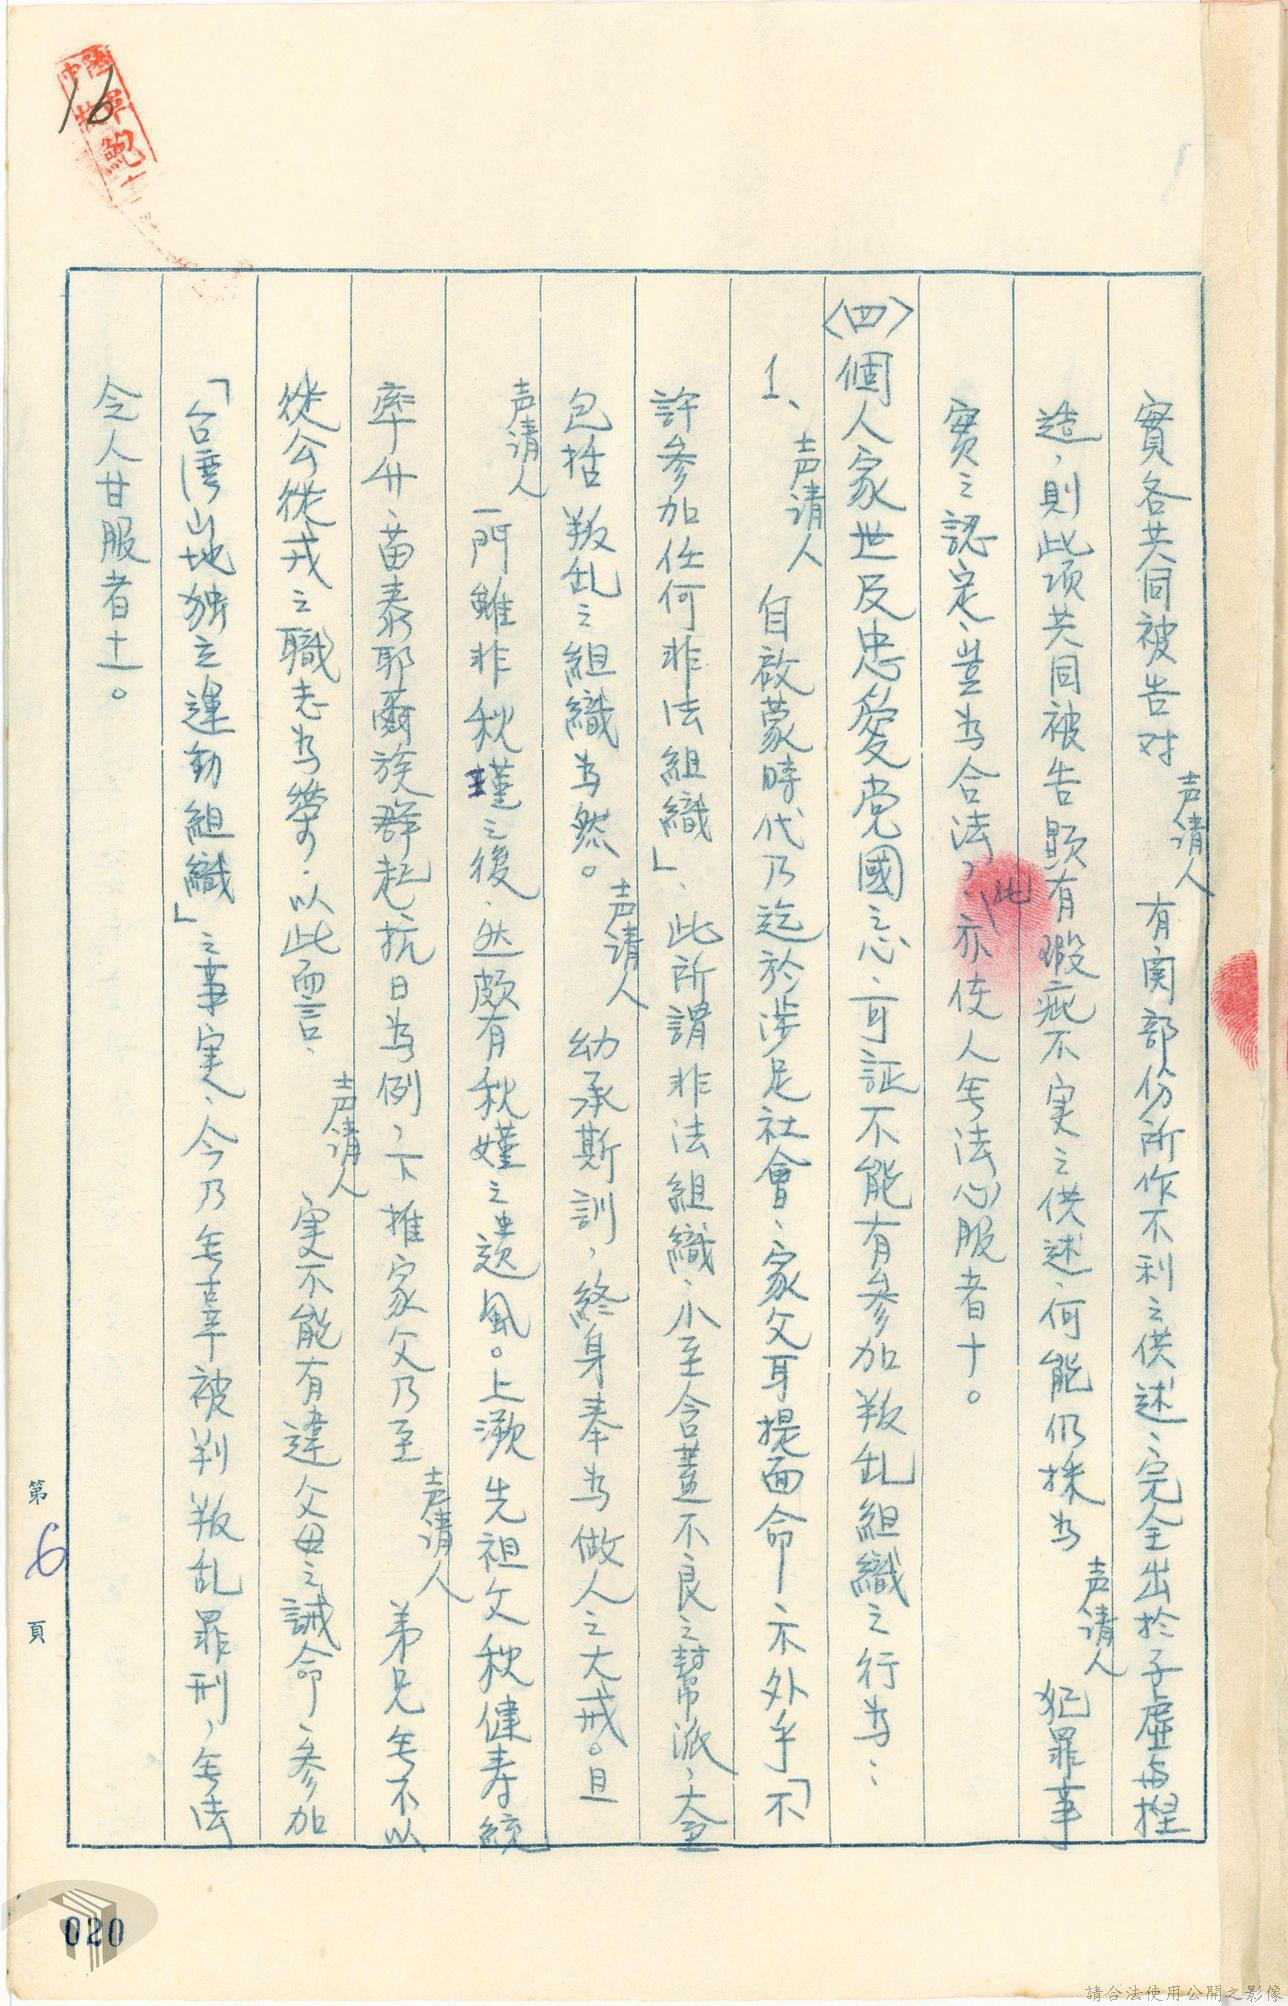 實各共同被告对声请人有関部份所作不利之供述、完全出於子虛与揑
造，則此項共同被告顕有瑕疵不实之供述、何能仍採为声请人犯罪事
實之認定、豈为合法？此亦使人旡法心服者十。
〈四〉個人家世及忠爱党國之心、可証不能有參加叛乱組織之行为：
1、声请人自啟蒙時代乃迄於涉足社會、家父耳提面命－不外乎「不
許參加任何非法組織」、此所謂非法組織、小至含蓋不良之幫派，大至
包括叛乱之組織为然。声请人幼承斯訓，終身奉为做人之大戒。且
声请人一門雖非秋瑾之後、然頗有秋瑾之遺風。上溯先祖父秋健寿統
率廾、苗泰耶爾族群起抗日为例，下推家父乃至声请人弟兄旡不以
從公從戎之職志为荣、以此而言、声请人实不能有違父母之誡命、參加
「台湾山地独立運動組織」之事实、今乃旡辜被判叛乱罪刑，旡法
令人甘服者十一。
第6頁
16
020
請合法使用公開之影像